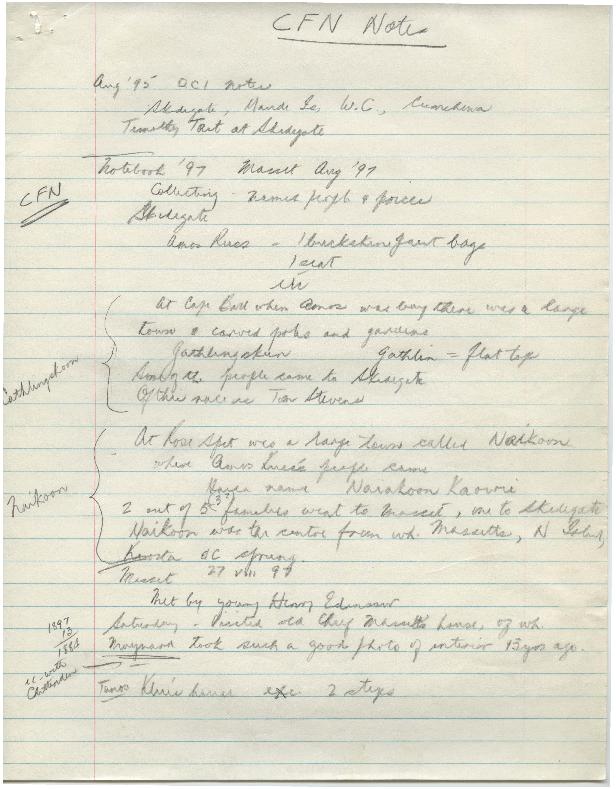 CFN Notes
Aug '95 QCI notes
Skidegate, Maude Is, W.C., Cumshewa
Timothy Tait at Skidegate
Notebook '97 Masset Aug '97
CFN
Collecting - names people & places
Skidegate
Amos Russ - 1 buckskin paint bag
1 seat
etc
At Cape Ball when Amos was boy there was a large
town & carved poles and gardens
Gathlingskun Gathlin = flat top
Cathlingskoon
Some of the people came to Skidegate
Of this race is Tom Stevens
At Rose Spit was a large town called Naikoon
where Amos Russ's people came
Naikoon
Haida name Narakoon
2 out of 5 (3?) families went to Masset, one to Skidegate
Naikoon was the centre from wh. Massetts, N Island,
Kioosta QC sprung.
Masset 27 VIII 97
Met by young Henry Edenshaw
Saturday - Visited old Chief Massett's house, of wh.
Maynard took such a good photo of interior 13 yrs ago.
1897
13
1884
ie - with
Chittenden
house 2 steps